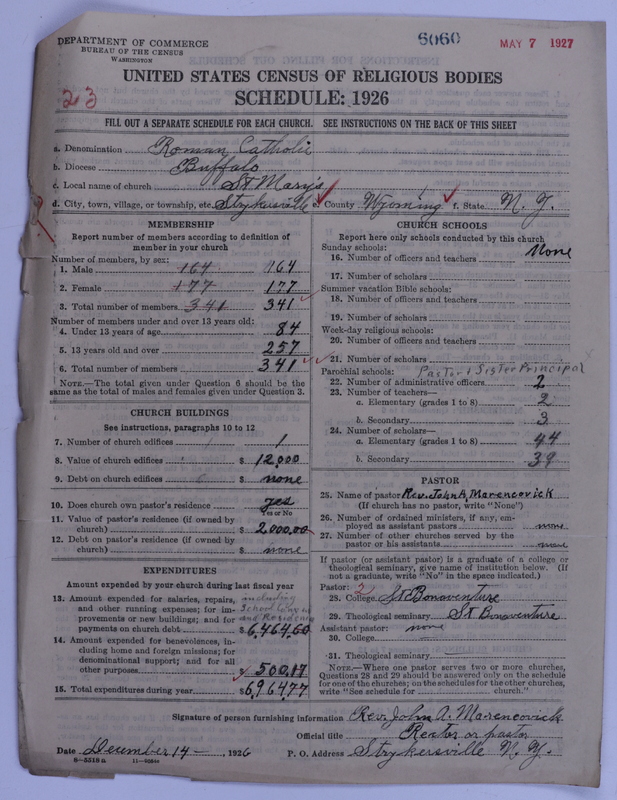 DEPARTMENT OF COMMERCE
BUREAU OF THE CENSUS
WASHINGTON
6060
MAY 7 1927
UNITED STATES CENSUS OF RELIGIOUS BODIES
23
SCHEDULE: 1926
FILL OUT A SEPARATE SCHEDULE FOR EACH CHURCH. SEE INSTRUCTIONS ON THE BACK OF THIS SHEET
a. Denomination Roman Catholic
b. Diocese Buffalo
c. Local name of church St Mary's
d. City, town, village, or township, etc. Strykersville e. County Wyoming f. State N. Y.
MEMBERSHIP
Report number of members according to definition of
member in your church
Number of members, by sex:
1. Male 164 164
2. Female 177 177
3. Total number of members 341 341
Number of members under and over 13 years old:
4. Under 13 years of age 84
5. 13 years old and over 257
6. Total number of members 341
NOTE.—The total given under Question 6 should be the
same as the total of males and females given under Question 3.
CHURCH BUILDINGS
See instructions, paragraphs 10 to 12
7. Number of church edifices 1
8. Value of church edifices $ 12,000
9. Debt on church edifices $ none
10. Does church own pastor's residence yes
Yes or No
11. Value of pastor's residence (if owned by
church) $ 2,000.00
12. Debt on pastor's residence (if owned by
church) $ none
EXPENDITURES
Amount expended by your church during last fiscal year
13. Amount expended for salaries, repairs, including
and other running expenses; for im- School
provements or new buildings; and for and Residence
payments on church debt $6,464,60
14. Amount expended for benevolences, in-
cluding home and foreign missions; for
denominational support; and for all
other purposes $ 500,17
15. Total expenditures during year $6,964,77
CHURCH SCHOOLS
Report here only schools conducted by this church
Sunday schools:
16. Number of officers and teachers None
17. Number of scholars
Summer vacation Bible schools:
18. Number of officers and teachers
19. Number of scholars
Week-day religious schools:
20. Number of officers and teachers
21. Number of scholars
Parochial schools: Pastor & Sister Principal
22. Number of administrative officers 2
23. Number of teachers—
a. Elementary (grades 1 to 8) 2
b. Secondary 3
24. Number of scholars—
a. Elementary (grades 1 to 8) 44
b. Secondary 39
PASTOR
25. Name of pastor Rev. John A. Marencovick
(If church has no pastor, write "None")
26. Number of ordained ministers, if any, em-
ployed as assistant pastors none
27. Number of other churches served by the
pastor or his assistants none
If pastor (or assistant pastor) is a graduate of a college or
theological seminary, give name of institution below. (If
not a graduate, write "No" in the space indicated.)
Pastor: 2
28. College St Bonaventure
29. Theological seminary St Bonaventure
Assistant pastor: none
30. College
31. Theological seminary
NOTE.—Where one pastor serves two or more churches,
Questions 28 and 29 should be answered only on the schedule
for one of the churches; on the schedules for the other churches,
write "See schedule for church."
Signature of person furnishing information Rev. John A. Marencovick
Official title Rector or pastor
Date December 14 — , 1926 P. O. Address Strykersville N. Y.
8—5518 a